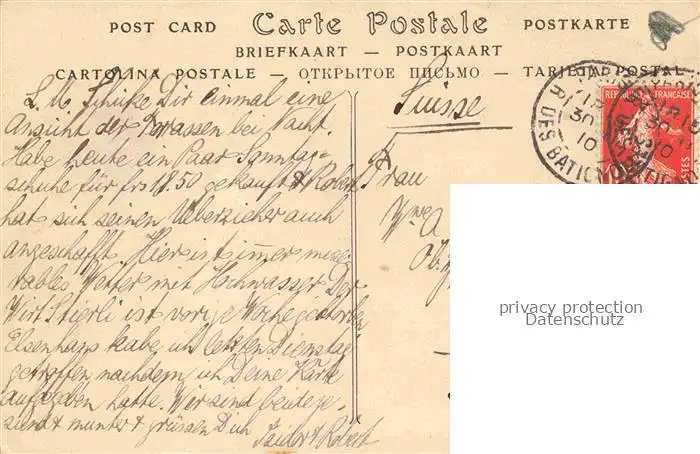 POST CARD Carte Postale POSTKARTE
BRIEFKAART — POSTKAART
CARTOLINA POSTALE — ОТКРЫТОЕ ПИСЬМО — TARJETA POSTAL
L. M. Schicke Dir einmal eine
Ansicht der Strassen bei Nacht.
Habe heute ein Paar Sonntag=
schuhe für frs 18.50 gekauft & Robert
hat sich seinen Ueberzieher auch
angeschafft. Hier ist immer mise=
rables Wetter mit Hochwasser. Der
Wirt Stierli ist vorige Woche gestorben
Elsenhans habe ich letzten Dienstag
getroffen nachdem ich Deine Karte
aufgegeben hatte. Wir sind beide ge=
sund & munter & grüssen Dich
Isidor & Robert
Suisse
Frau
Wwe A
REPUBLIQUE FRANÇAISE
POSTES
R. DES BATIGNOLLES
30
10
privacy protection
Datenschutz